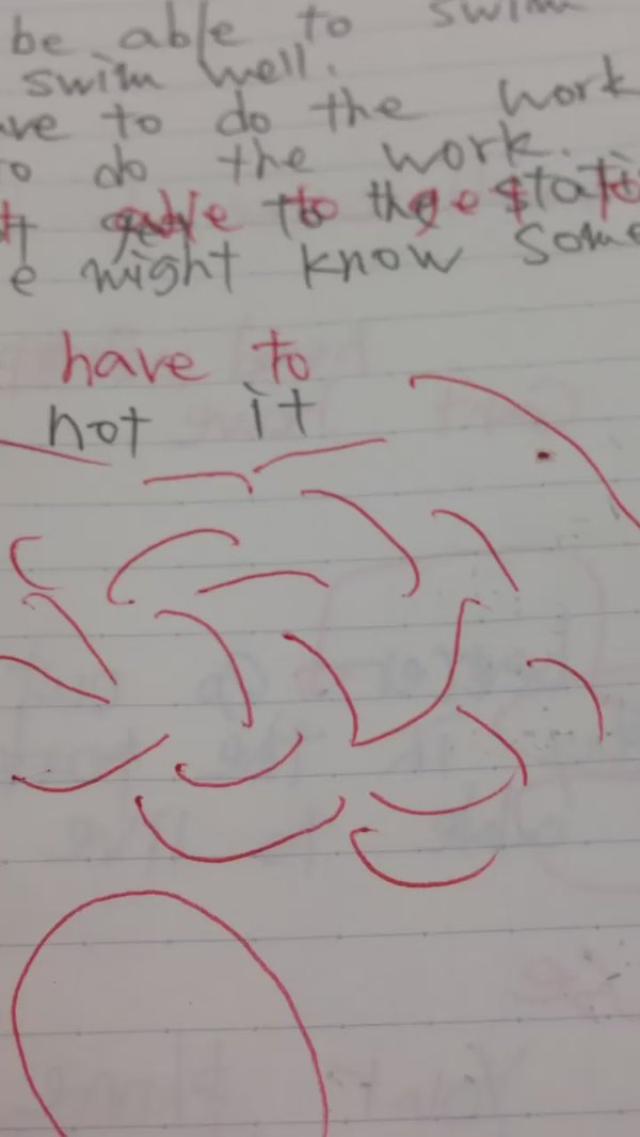 be able to swim
swim well.
ve to do the work
o do the work.
to the
e might know some
have to
not it